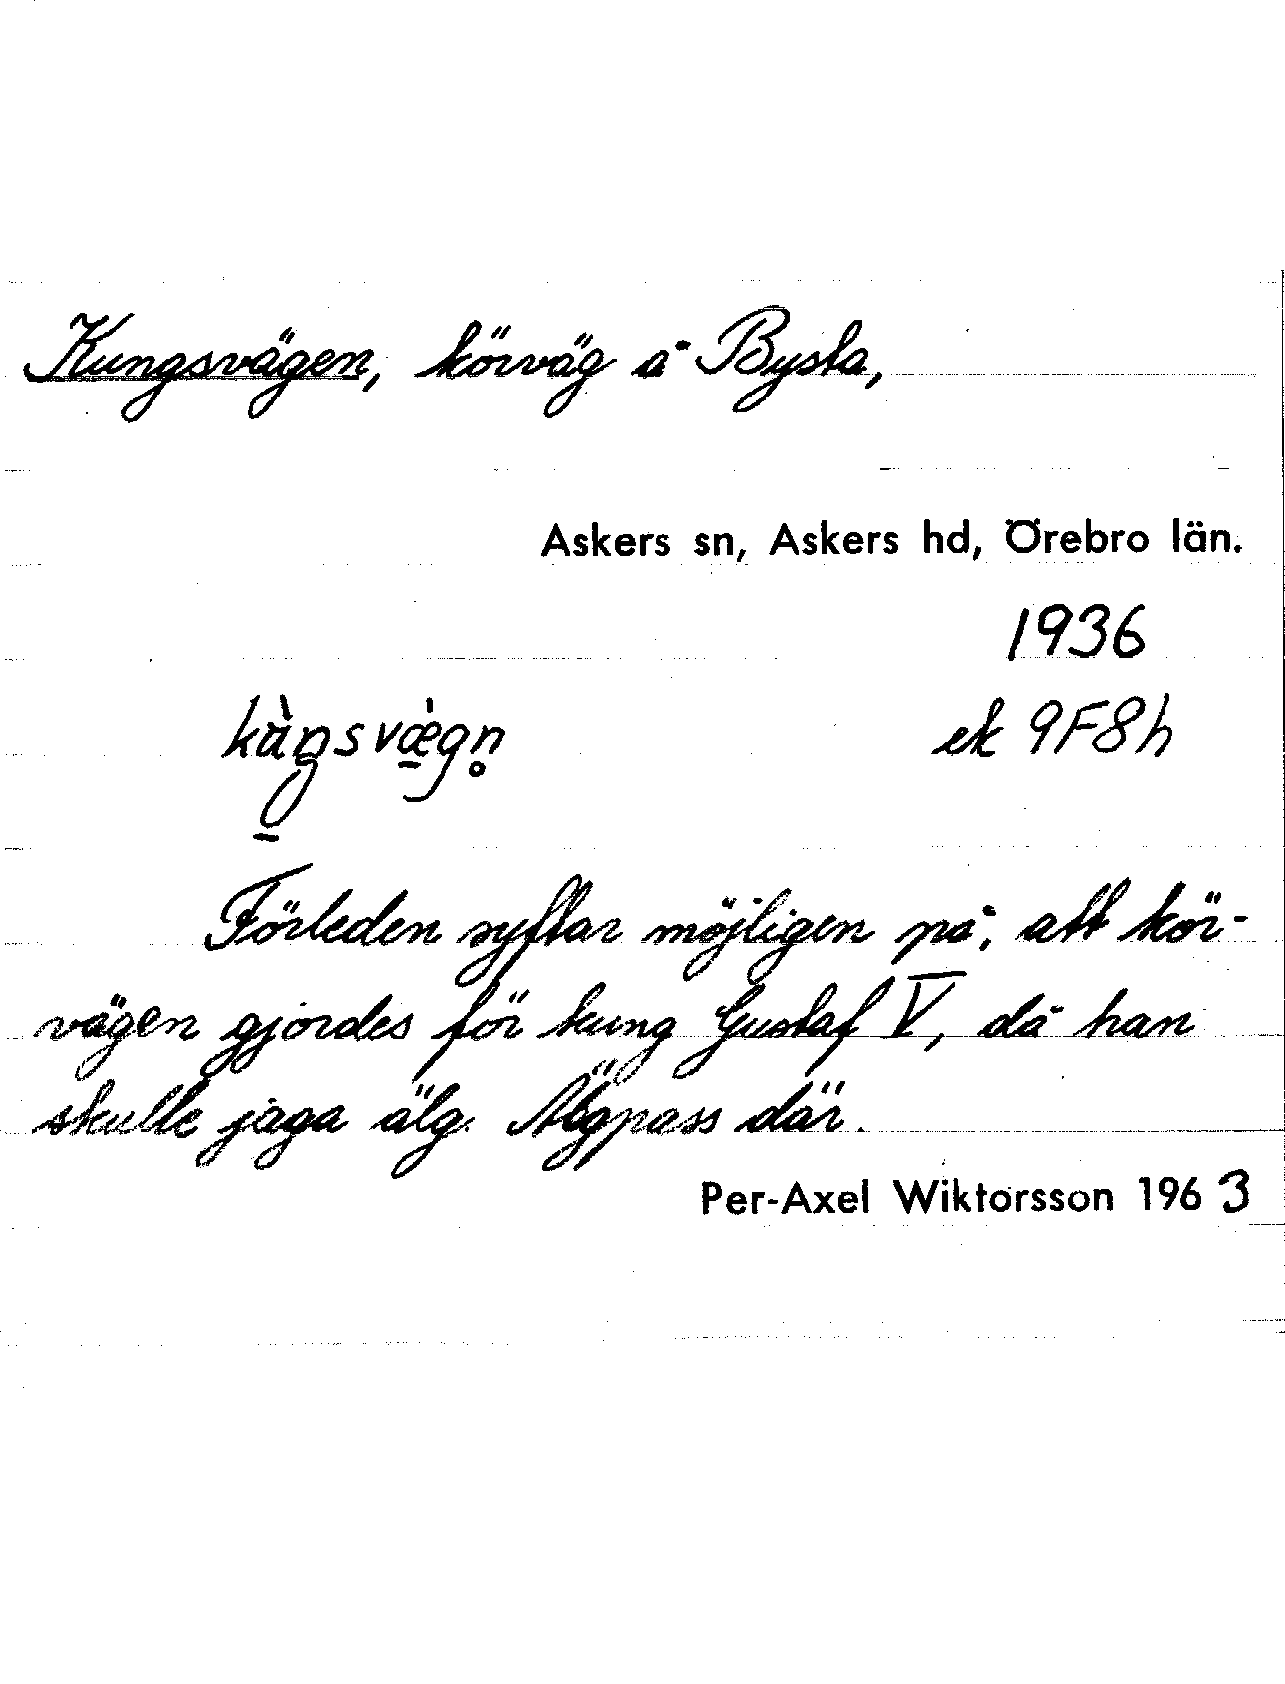 Kungsvägen, körväg å Bysta,
Askers sn, Askers hd, Örebro län.
1936
kùŋsvæ̀gn̥ ek 9F8h
Förleden syftar möjligen på, att kör-
vägen gjordes för kung Gustaf V, då han
skulle jaga älg. Älgpass där.
Per-Axel Wiktorsson 1963